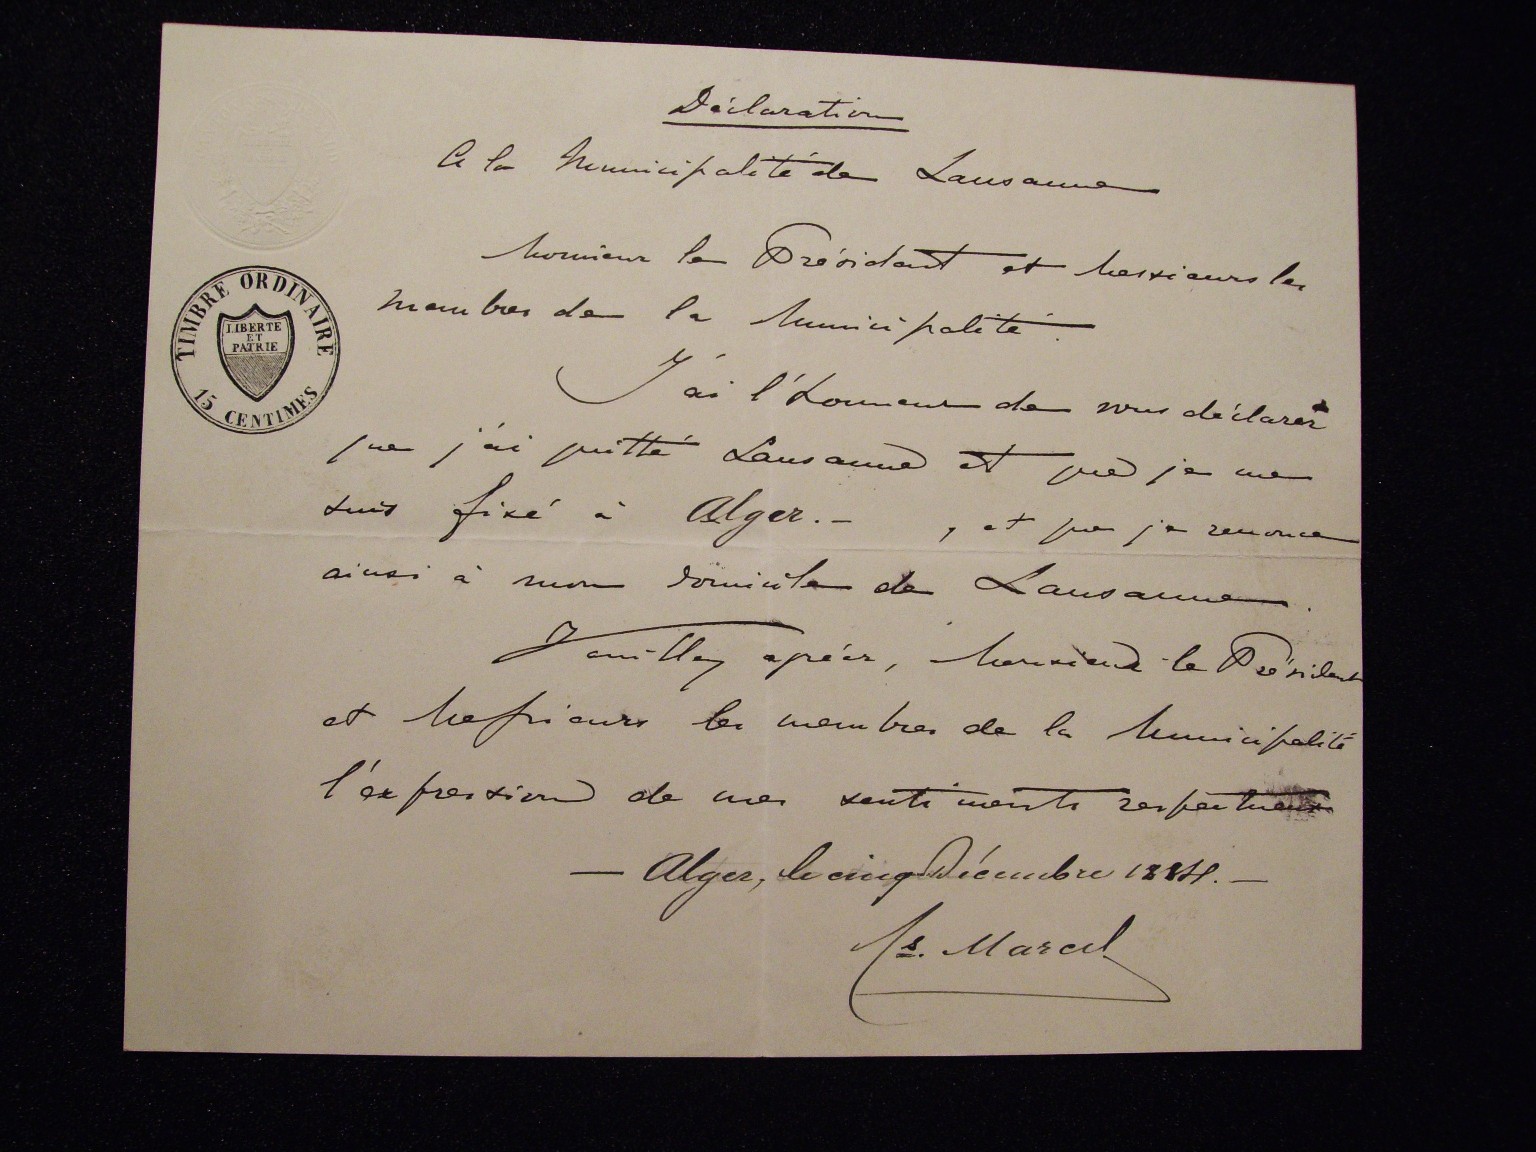 Déclaration
A la Municipalité de Lausanne
Monsieur le Président et Messieurs les
membres de la Municipalité.
J'ai l'honneur de vous déclarer
que j'ai quitté Lausanne et que je me
suis fixé à Alger. - , et que je renonce
ainsi à mon domicile de Lausanne.
Veuillez agréer, Monsieur le Président
et Messieurs les membres de la Municipalité
l'expression de mes sentiments respectueux
— Alger, le cinq Décembre 1884. —
Marcel
TIMBRE ORDINAIRE
LIBERTE
ET
PATRIE
15 CENTIMES